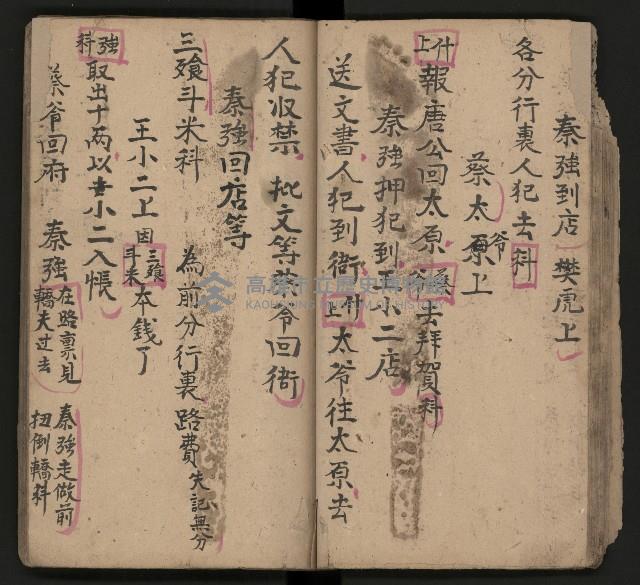 秦強到店 樊虎上
各分行裏人犯去科
蔡太爷原上
什上報唐公回太原 蔡爷去拜賀科
秦強押犯到王小二店
送文書人犯到衙 什上太爷往太原去
人犯收禁 批文等蔡爷回衙
秦強回店等
三飱斗米科 為前分行裏路費失記無分
王小二上 因三飱斗米本錢了
強科取出十两以去小二入帳
蔡爷回府 秦強在路禀見轎夫过去 秦強走做前扭倒轎科
高雄市立歷史博物館
KAOHSIUNG MUSEUM OF HISTORY